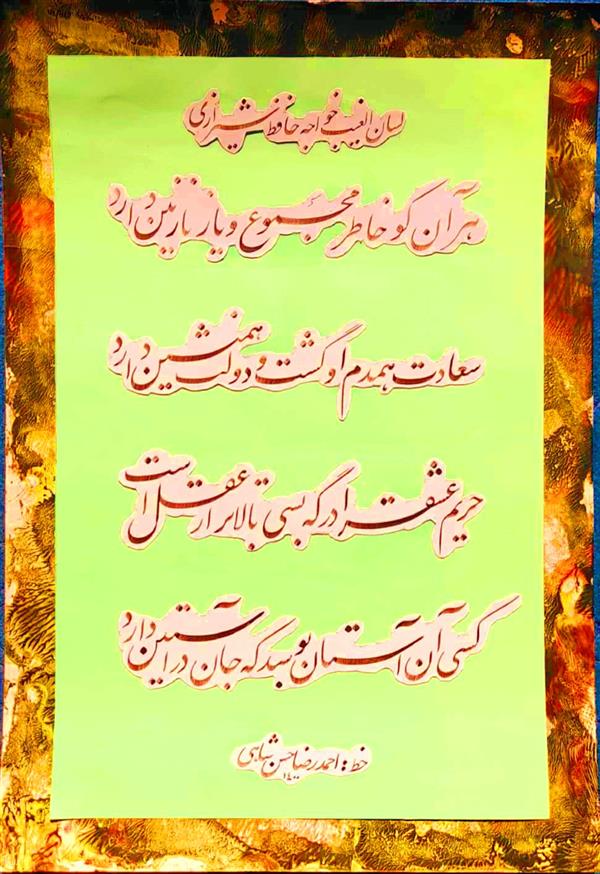 لسان الغیب خواجه حافظ شیرازی
هر آن کو خاطر مجموع و یار نازنین دارد
سعادت همدم او گشت و دولت همنشین دارد
حریم عشق را درگه بسی بالاتر از عقل است
کسی آن آستان بوسد که جان در آستین دارد
خط: احمدرضا حسن شاهی